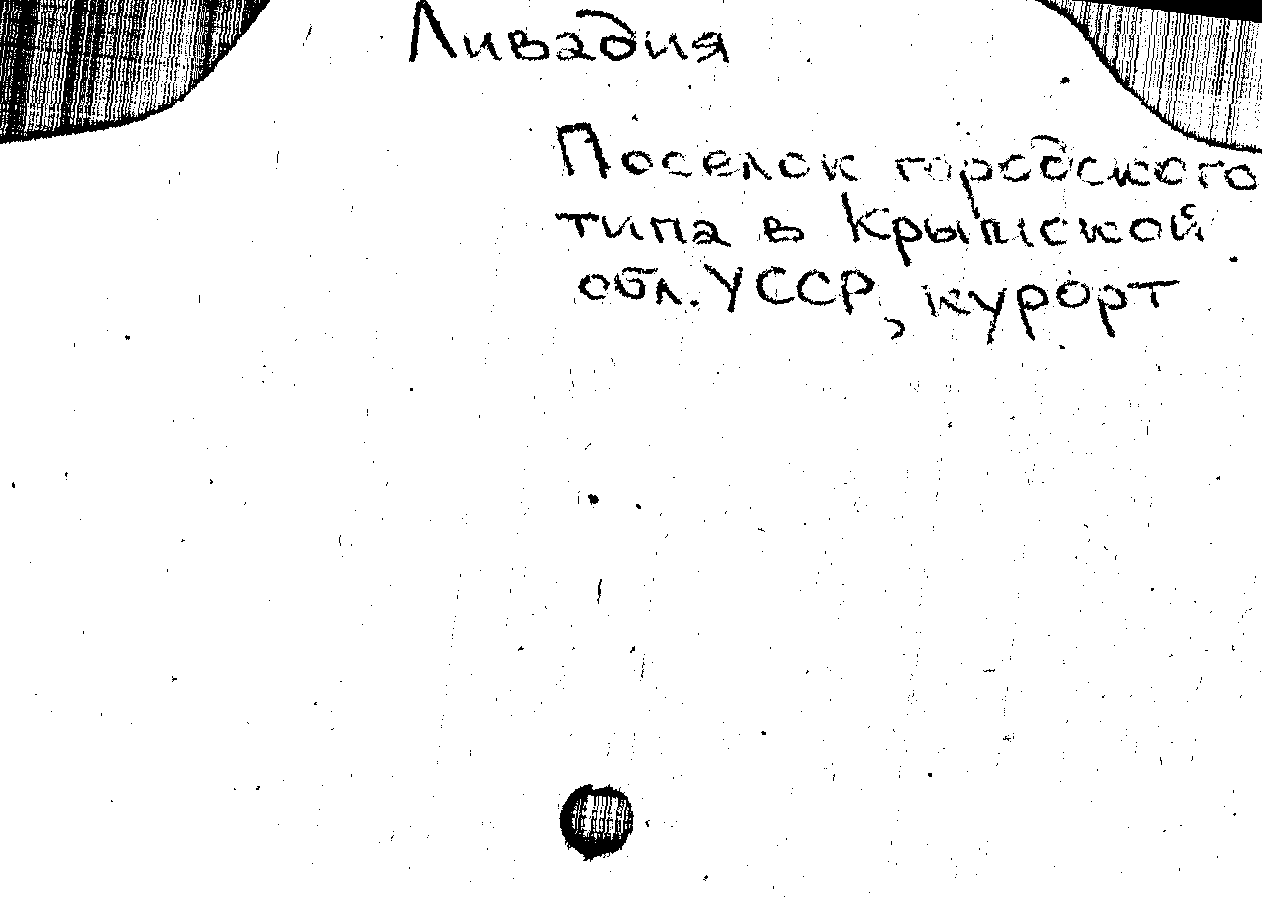 Ливадия
Поселок городского
типа в Крымской
обл. УССР, курорт